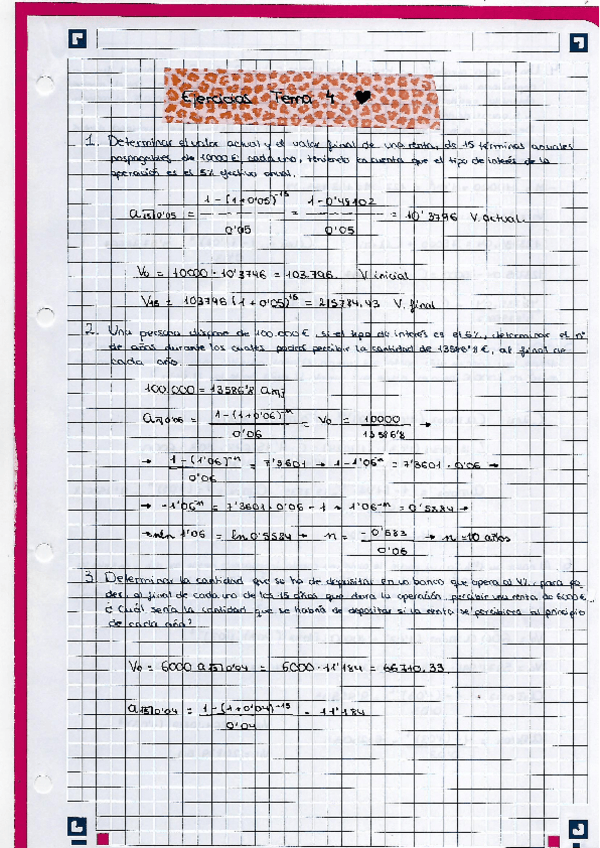 Ejercicios Tema 4
1. Determinar el valor actual y el valor final de una renta, de 15 términos anuales
pospagables de 10000 € cada uno, teniendo en cuenta que el tipo de interés de la
operación es el 5% efectivo anual.
a15|0'05 = 1-(1+0'05)^-15 / 0'05 = 1-0'48102 / 0'05 = 10'3796 V. actual.
V0 = 10000 · 10'3746 = 103.796. V inicial
V15 = 103796 (1+0'05)^15 = 215784,43 V. final
2. Una persona dispone de 100.000 €, si el tipo de interés es el 6%, determinar el nº
de años durante los cuales podrá percibir la cantidad de 13586'8 €, al final de
cada año.
100.000 = 13586'8 an|i
an|0'06 = 1-(1+0'06)^-n / 0'06 = V0 = 10000 / 13586'8 →
→ 1-(1'06)^-n / 0'06 = 7'3601 → 1-1'06^-n = 7'3601 · 0'06 →
→ -1'06^-n = 7'3601 · 0'06 - 1 → 1'06^-n = 0'5584 →
→ -n ln 1'06 = ln 0'5584 → n = -0'583 / 0'06 → n = 10 años
3. Determinar la cantidad que se ha de depositar en un banco que opera al 4% para po-
der, al final de cada uno de los 15 años que dura la operación, percibir una renta de 6000 €.
¿Cuál sería la cantidad que se habría de depositar si la renta se percibiera al principio
de cada año?
V0 = 6000 a15|0'04 = 6000 · 11'184 = 66710,33.
a15|0'04 = 1-(1+0'04)^-15 / 0'04 = 11'184